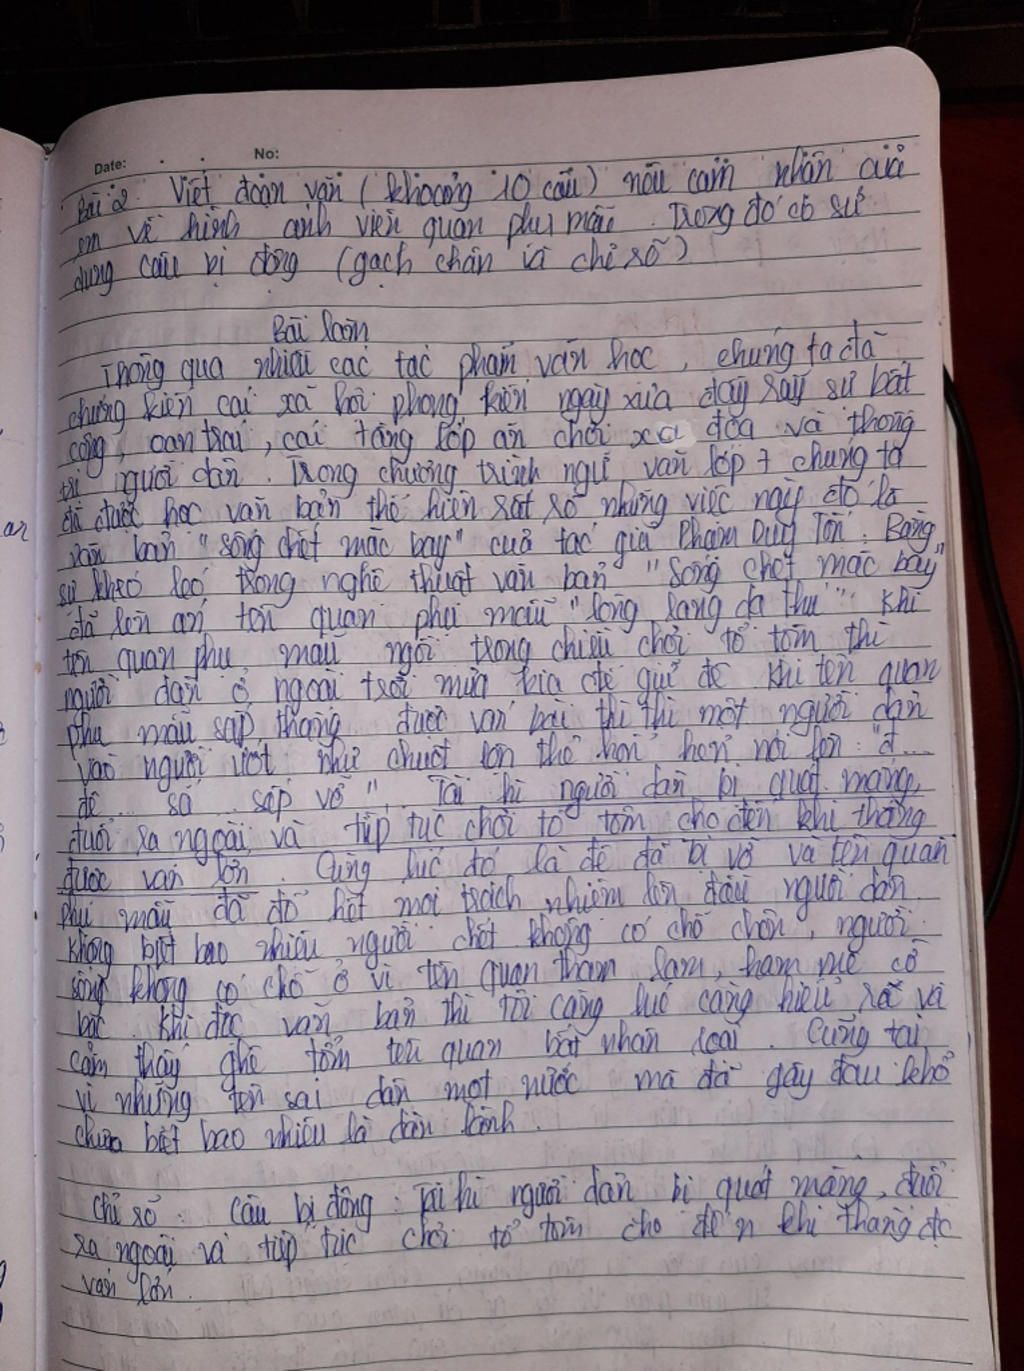 Date: . . No:
Bài 2 Viết đoạn văn (khoảng 10 câu) nêu cảm nhận của
em về hình ảnh viên quan phụ mẫu. Trong đó có sử
dụng câu bị động (gạch chân và chỉ số)
Bài làm
Trong qua nhiều các tác phẩm văn học, chúng ta đã
chứng kiến cái xã hội phong kiến ngày xưa đầy sự bất
công, oan trái, cái tầng lớp ăn chơi xa đọa và thống
trị người dân. Trong chương trình ngữ văn lớp 7 chúng ta
đã được học văn bản thể hiện sát số những việc ngày đó là
văn bản "sống chết mặc bay" của tác giả Phạm Duy Tốn. Bằng
sự khéo léo trong nghệ thuật văn bản "Sống chết mặc bay"
đã lên án tên quan phụ mẫu "lòng lang dạ thú". Khi
tên quan phụ mẫu ngồi trong chiếu chơi tổ tôm thì
người dân ở ngoài trời mưa kia để giữ đê. Khi tên quan
phụ mẫu sắp thắng được ván bài thì thì một người dân
vào người ướt như chuột lớn thở hổn hển nói lớn: "đ....
đê... sắ.. sắp vỡ". Tài hì người dân bị quát mắng,
đuổi ra ngoài và tiếp tục chơi tổ tôm cho đến khi thắng
được ván lớn. Cùng lúc đó là đê đã bị vỡ và tên quan
phụ mẫu đã đổ hết mọi trách nhiệm lên đầu người dân.
Không biết bao nhiêu người chết không có chỗ chôn, người
sống không có chỗ ở vì tên quan tham lam, ham mê cờ
bạc. Khi đọc văn bản thì tôi càng lúc càng hiểu rõ và
cảm thấy ghê tởm tên quan bất nhân loại. Cũng tại
vì những tên sai dân một nước mà đã gây đau khổ
chưa biết bao nhiêu là dân lành.
Chỉ số: câu bị động: Tài hì người dân bị quát mắng, đuổi
ra ngoài và tiếp tục chơi tổ tôm cho đến khi thắng đc
ván lớn.
an